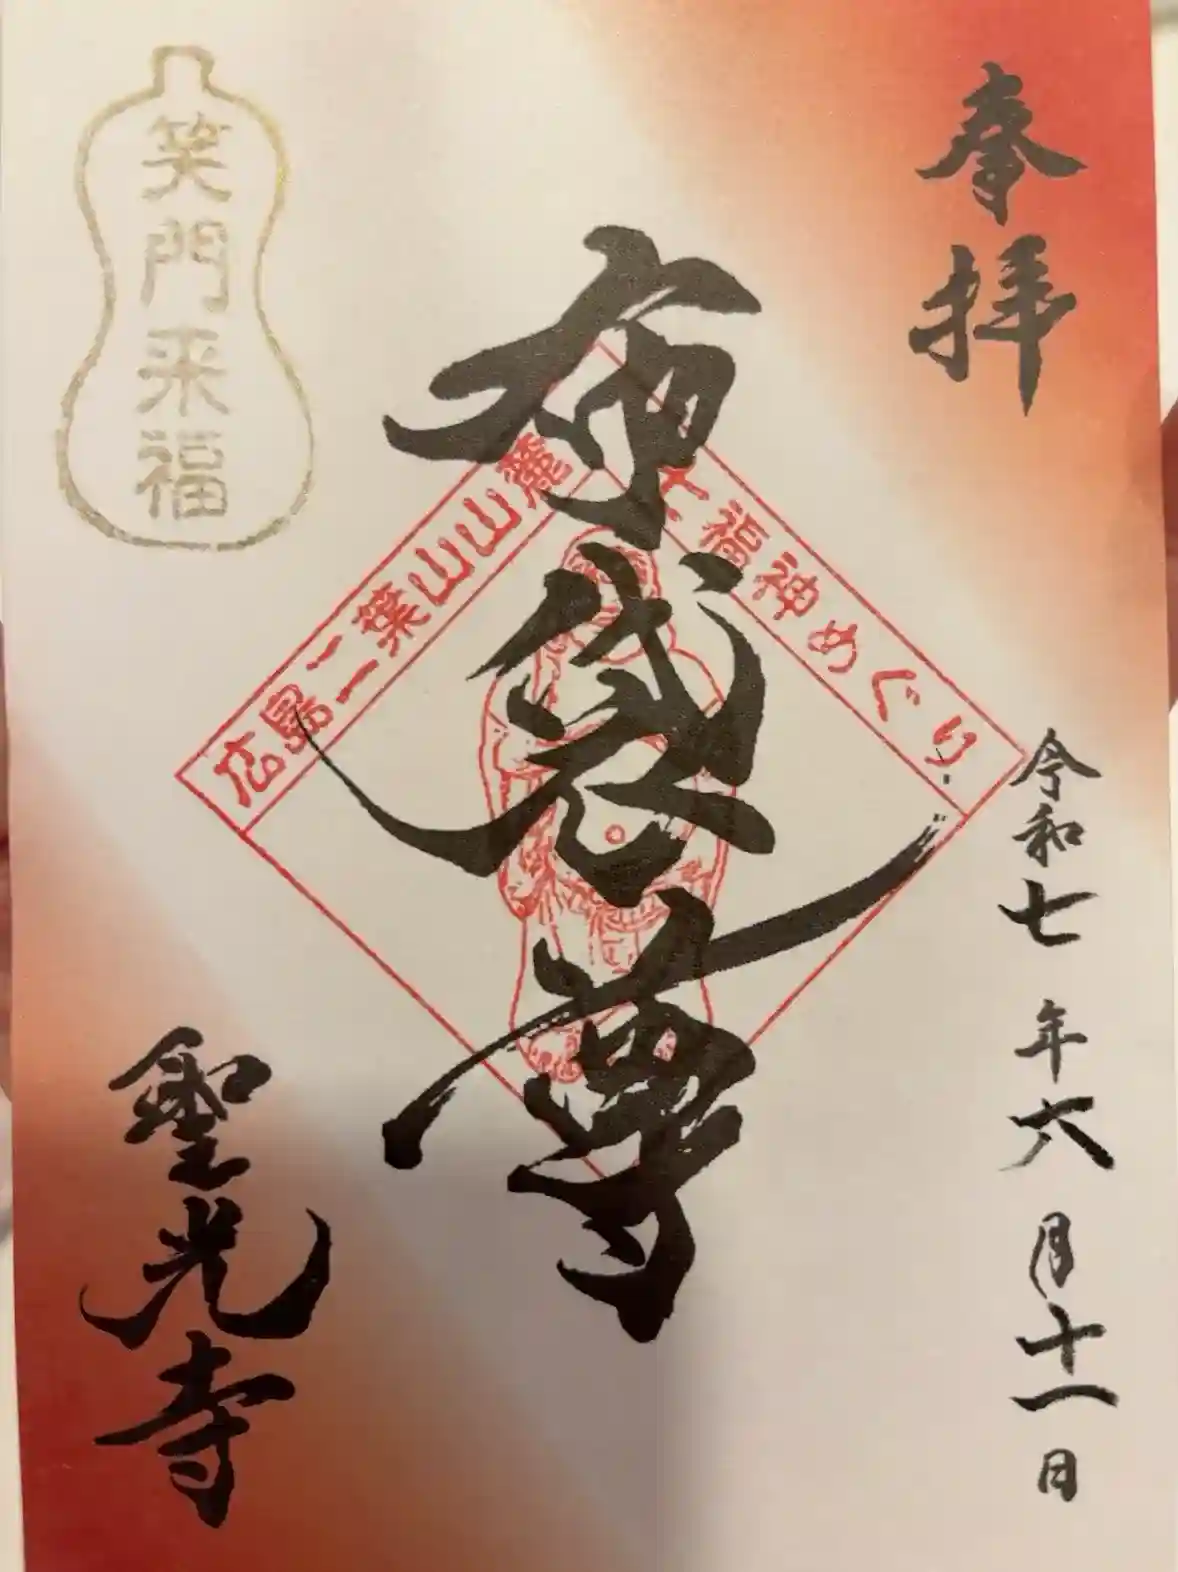 奉拝
令和七年六月十一日
布袋尊
広島二葉山山麓
七福神めぐり
笑門来福
聖光寺